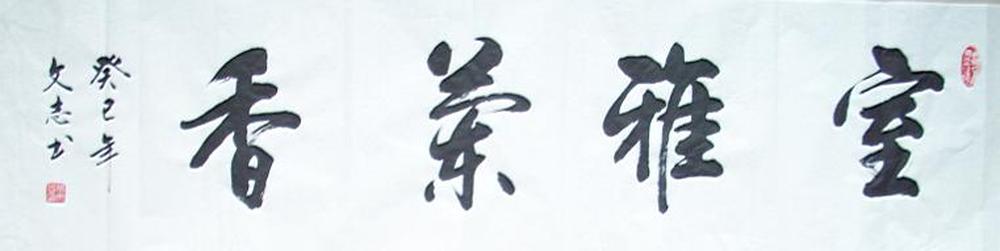 室雅兰香
癸巳年
文志书